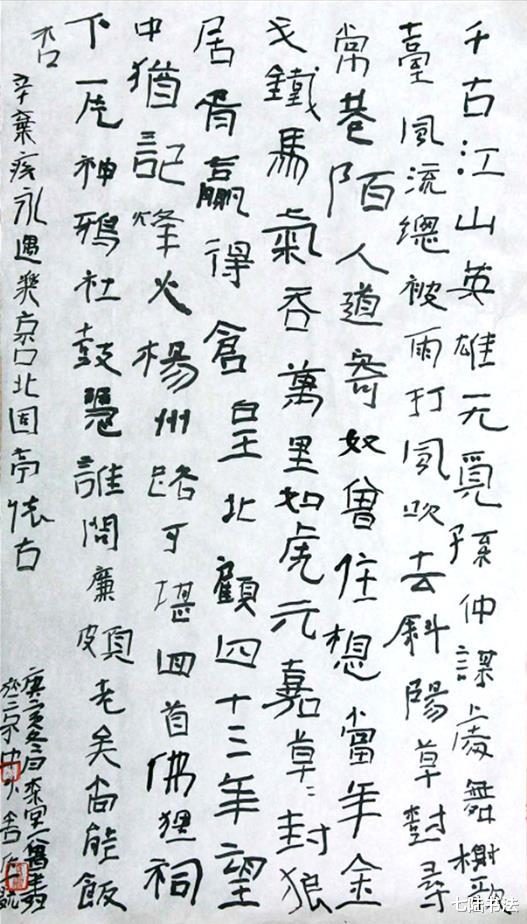 千古江山英雄无覓孫仲謀處舞榭歌
臺風流總被雨打風吹去斜陽草對尋
常巷陌人道寄奴曾住想當年金
戈鐵馬氣吞萬里如虎元嘉草〻封狼
居胥贏得倉皇北顧四十三年望
中猶記烽火楊州路可堪回首佛狸祠
下一片神鴉社鼓憑誰問廉頗老矣尚能飯
否
辛棄疾永遇樂京口北固亭懷古
七陆书法